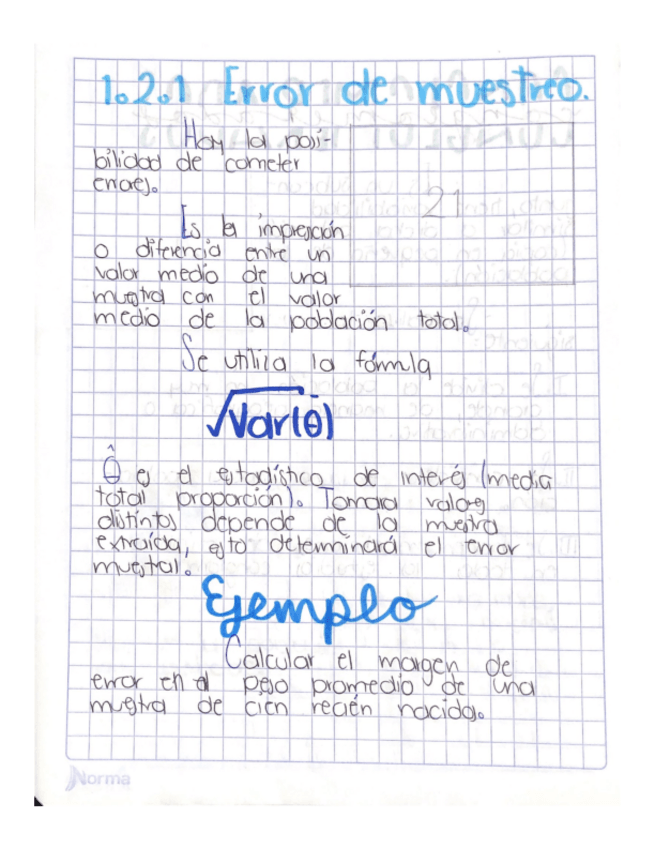 1.2.1 Error de muestreo.
Hay la posi-
bilidad de cometer
errores.
21
Es la impresición
o diferencia entre un
valor medio de una
muestra con el valor
medio de la población total.
Se utiliza la fórmula
√Var(θ̂)
θ̂ es el estadístico de interés (media
total proporción). Tomara valores
distintos depende de la muestra
extraída, esto determinará el error
muestral.
Ejemplo
Calcular el margen de
error en el peso promedio de una
muestra de cien recién nacidos.
Norma